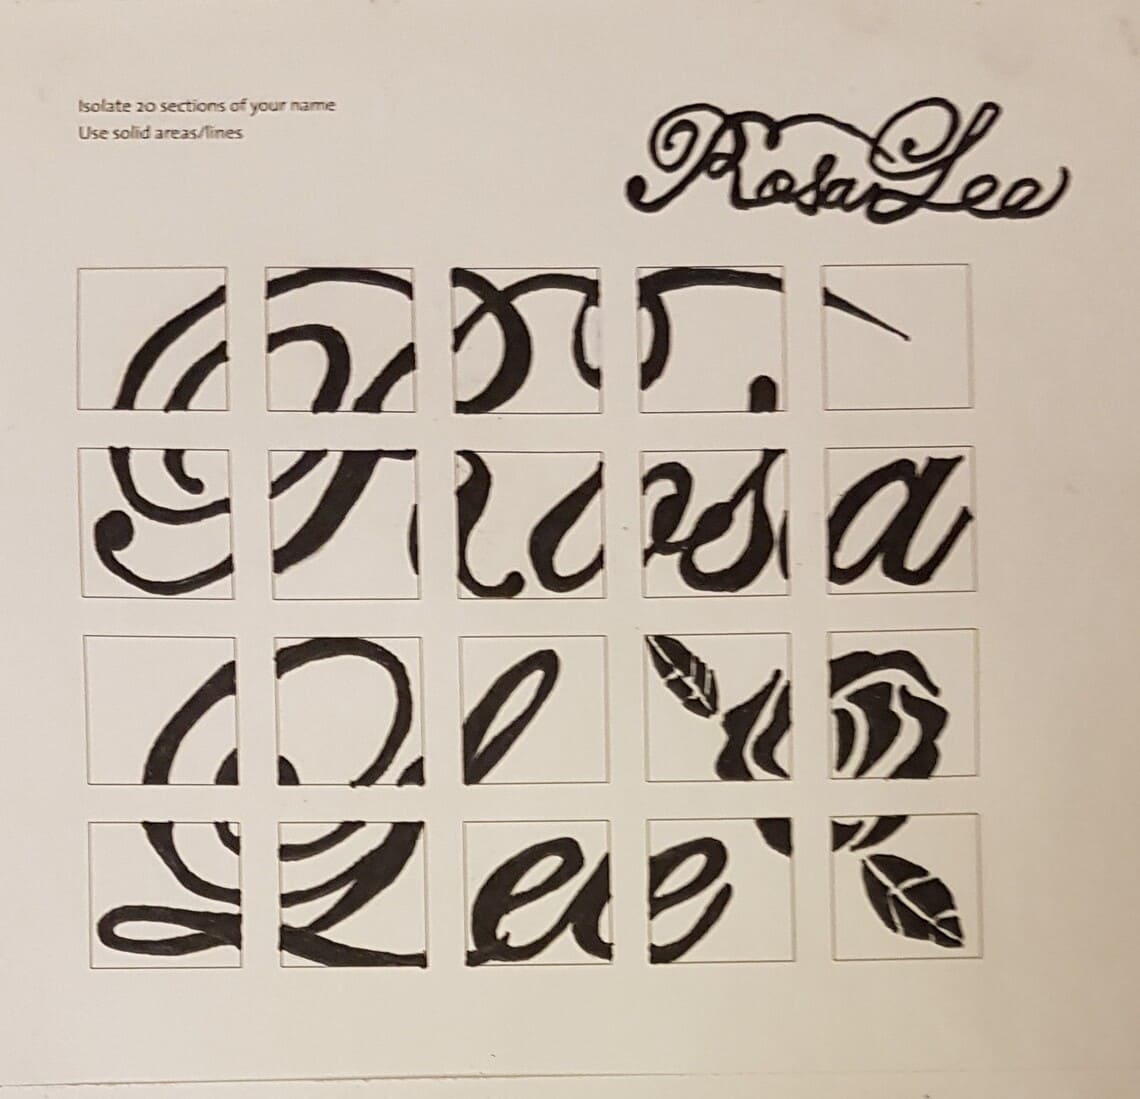 Isolate 20 sections of your name
Use solid areas/lines
Rosa Lee
Rosa
Lee